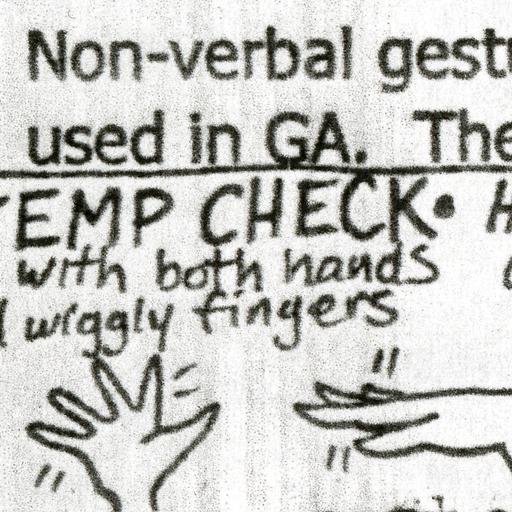 Non-verbal gest
used in GA. The
TEMP CHECK• H
with both hands
wiggly fingers